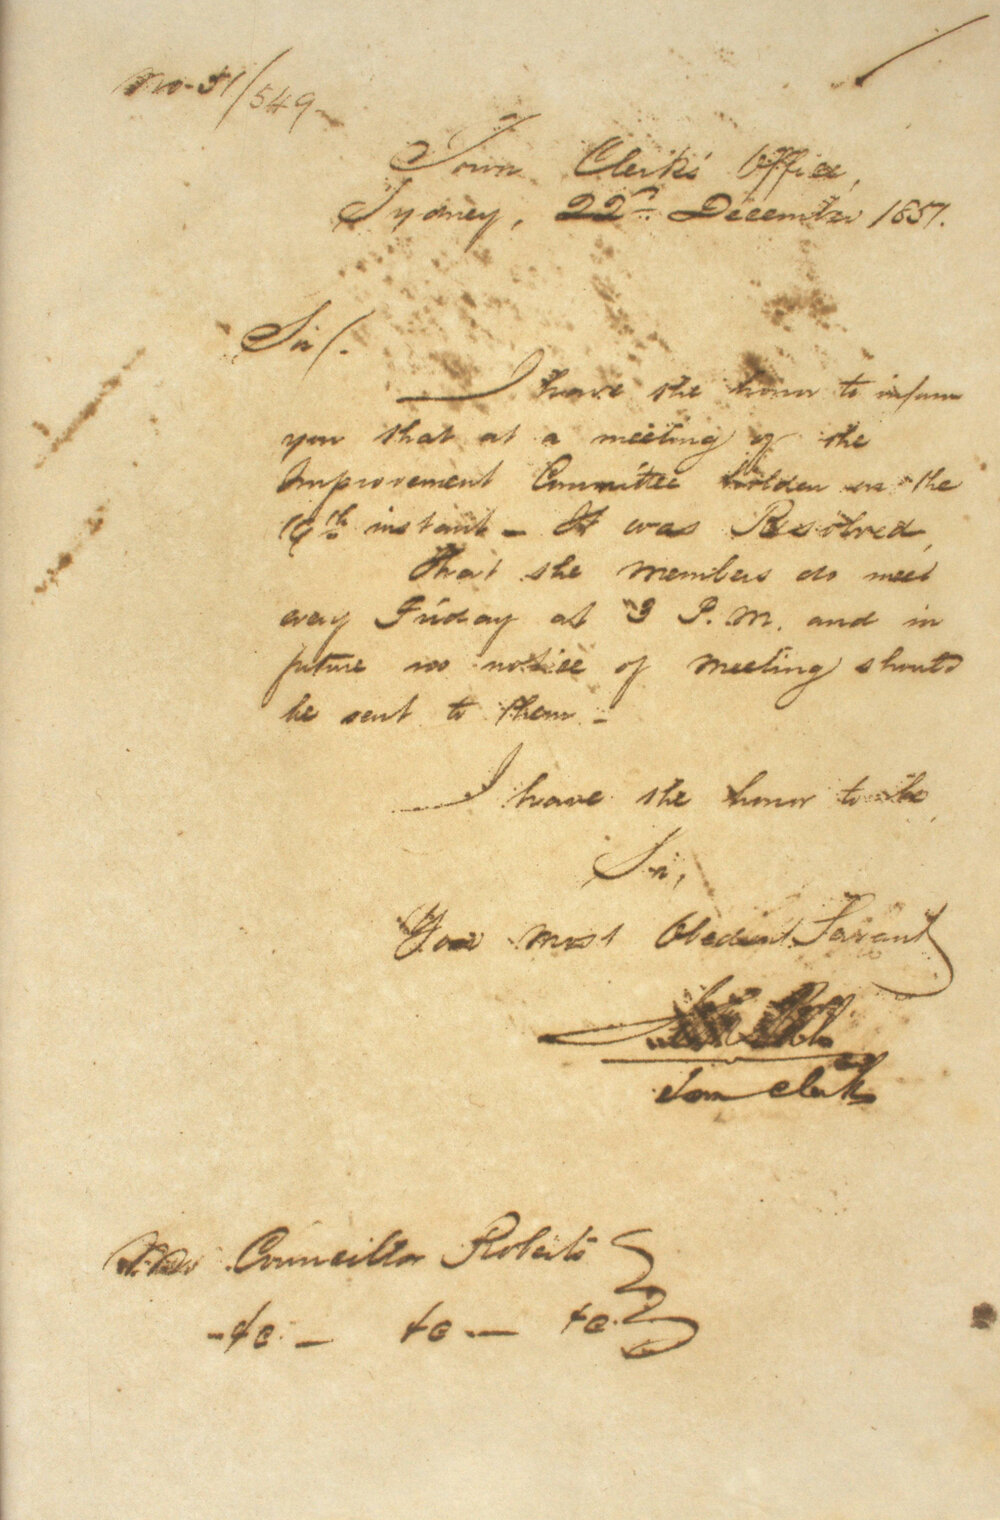 No. 51/549
Town Clerk's Office,
Sydney, 22nd December 1857.
Sir/.
I have the honor to inform
you that at a meeting of the
Improvement Committee holden on the
19th instant — It was Resolved,
That the members do meet
every Friday at 3 P.M. and in
future no notice of meeting should
be sent to them —
I have the honor to be,
Sir,
Your most Obedient Servant
Town Clerk
Councillor Roberts
&c — &c — &c.